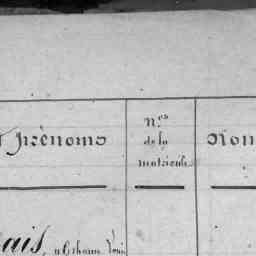 Prénoms
n.os
de la
matricule
Nom
ais,